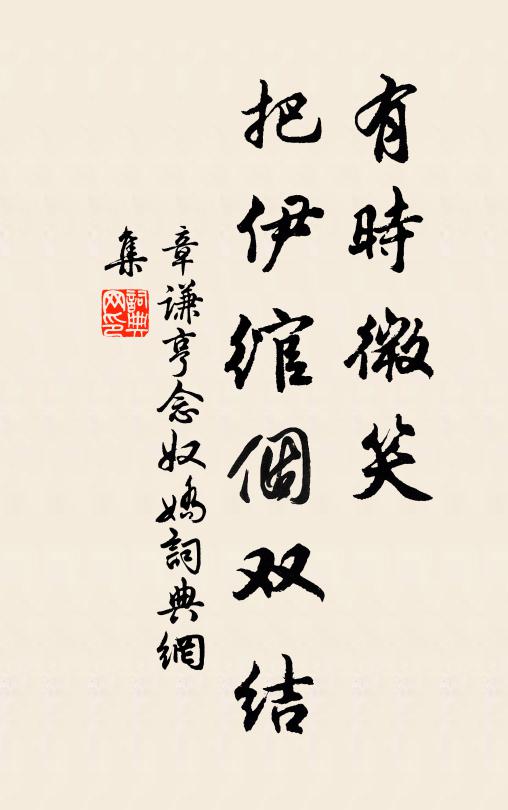 有時微笑
把伊綰個双结
章谦亨念奴嬌詞典網
集
詞典
网印